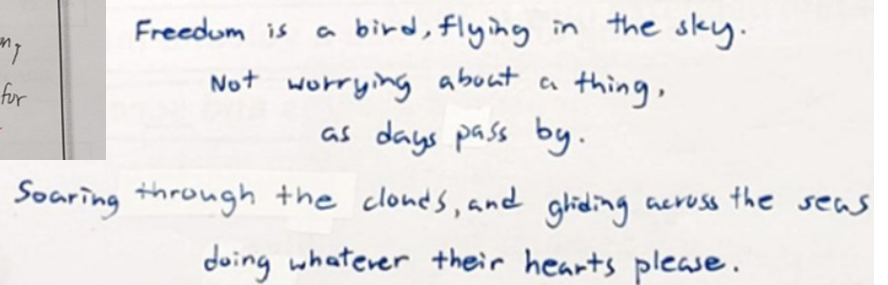 for
Freedom is a bird, flying in the sky.
Not worrying about a thing,
as days pass by.
Soaring through the clouds, and gliding across the seas
doing whatever their hearts please.